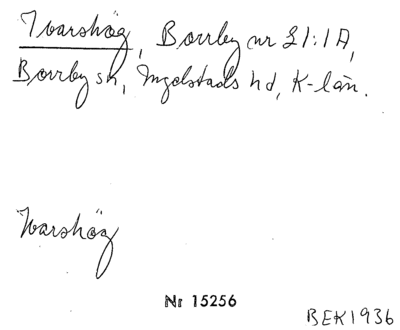 Ivarshög, Borrby nr 21:1A,
Borrby sn, Ingelstads hd, K-län.
Ivarshög
Nr 15256
BEK1936